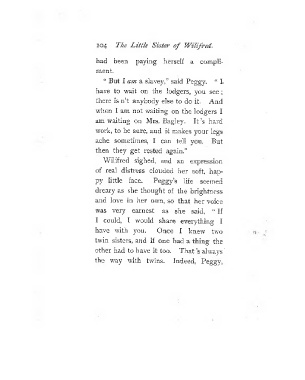 204 The Little Sister of Wilifred.
had been paying herself a compli-
ment.
"But I am a slavey," said Peggy. "I
have to wait on the lodgers, you see;
there is n't anybody else to do it. And
when I am not waiting on the lodgers I
am waiting on Mrs. Bagley. It's hard
work, to be sure, and it makes your legs
ache sometimes, I can tell you. But
then they get rested again."
Wilifred sighed, and an expression
of real distress clouded her soft, hap-
py little face. Peggy's life seemed
dreary as she thought of the brightness
and love in her own, so that her voice
was very earnest as she said, "If
I could, I would share everything I
have with you. Once I knew two
twin sisters, and if one had a thing the
other had to have it too. That's always
the way with twins. Indeed, Peggy,